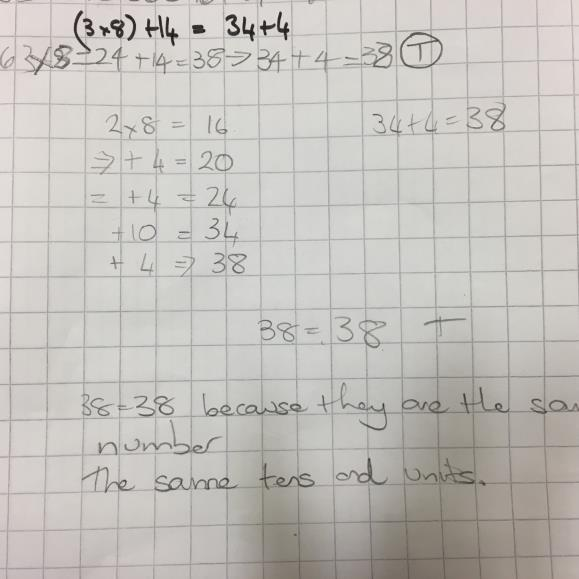 (3×8) + 14 = 34+4
3×8=24+14=38⇒34+4=38 T
2×8 = 16
34+4=38
⇒ + 4 = 20
= +4 = 24
+10 = 34
+ 4 ⇒ 38
38 = 38 T
38=38 because they are the
number
The same tens and units.